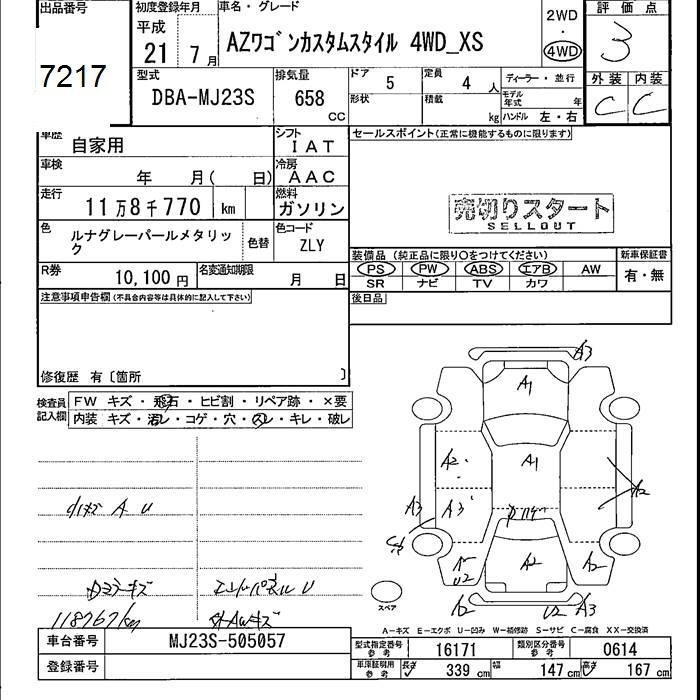 出品番号 初度登録年月 車名・グレード 評価点
平成 2WD
21 7月 AZワゴンカスタムスタイル 4WD_XS ・ 3
4WD
7217 型式 排気量 ドア 定員 ディーラー・並行 外装 内装
DBA-MJ23S 658 CC 5 4 人 モデル年式 年 C C
形状 積載 kg ハンドル 左・右
車歴 自家用 シフト IAT セールスポイント(正常に機能するものに限ります)
車検 年 月( 日) 冷房 AAC
走行 11万8千770 km 燃料 ガソリン
売切りスタート
SELLOUT
色 ルナグレーパールメタリック 色替 色コード ZLY
装備品(純正品に限り○をつけてください) 新車保証書
R券 10,100円 名変通知期限 月 日 PS PW ABS エアB AW 有・無
SR ナビ TV カワ
注意事項申告欄(不具合内容等は具体的に記入して下さい) 後日品
修復歴 有〔箇所 〕
検査員記入欄 FW キズ・飛石・ヒビ割・リペア跡・×要
内装 キズ・汚レ・コゲ・穴・スレ・キレ・破レ
A3
A1
A2 A1
A3 A3 A2
小キズ A U
A2 A2
U2
ダミラーキズ エンドパネル U
A2 U2 A3
118767km 外AWキズ
スペア
A-キズ E-エクボ U-凹み W-補修跡 S-サビ C-腐食 XX-交換済
車台番号 MJ23S-505057 型式指定番号 参考 16171 類別区分番号 参考 0614
登録番号 車庫証明用 参考 長さ 339 cm 幅 147 cm 高さ 167 cm